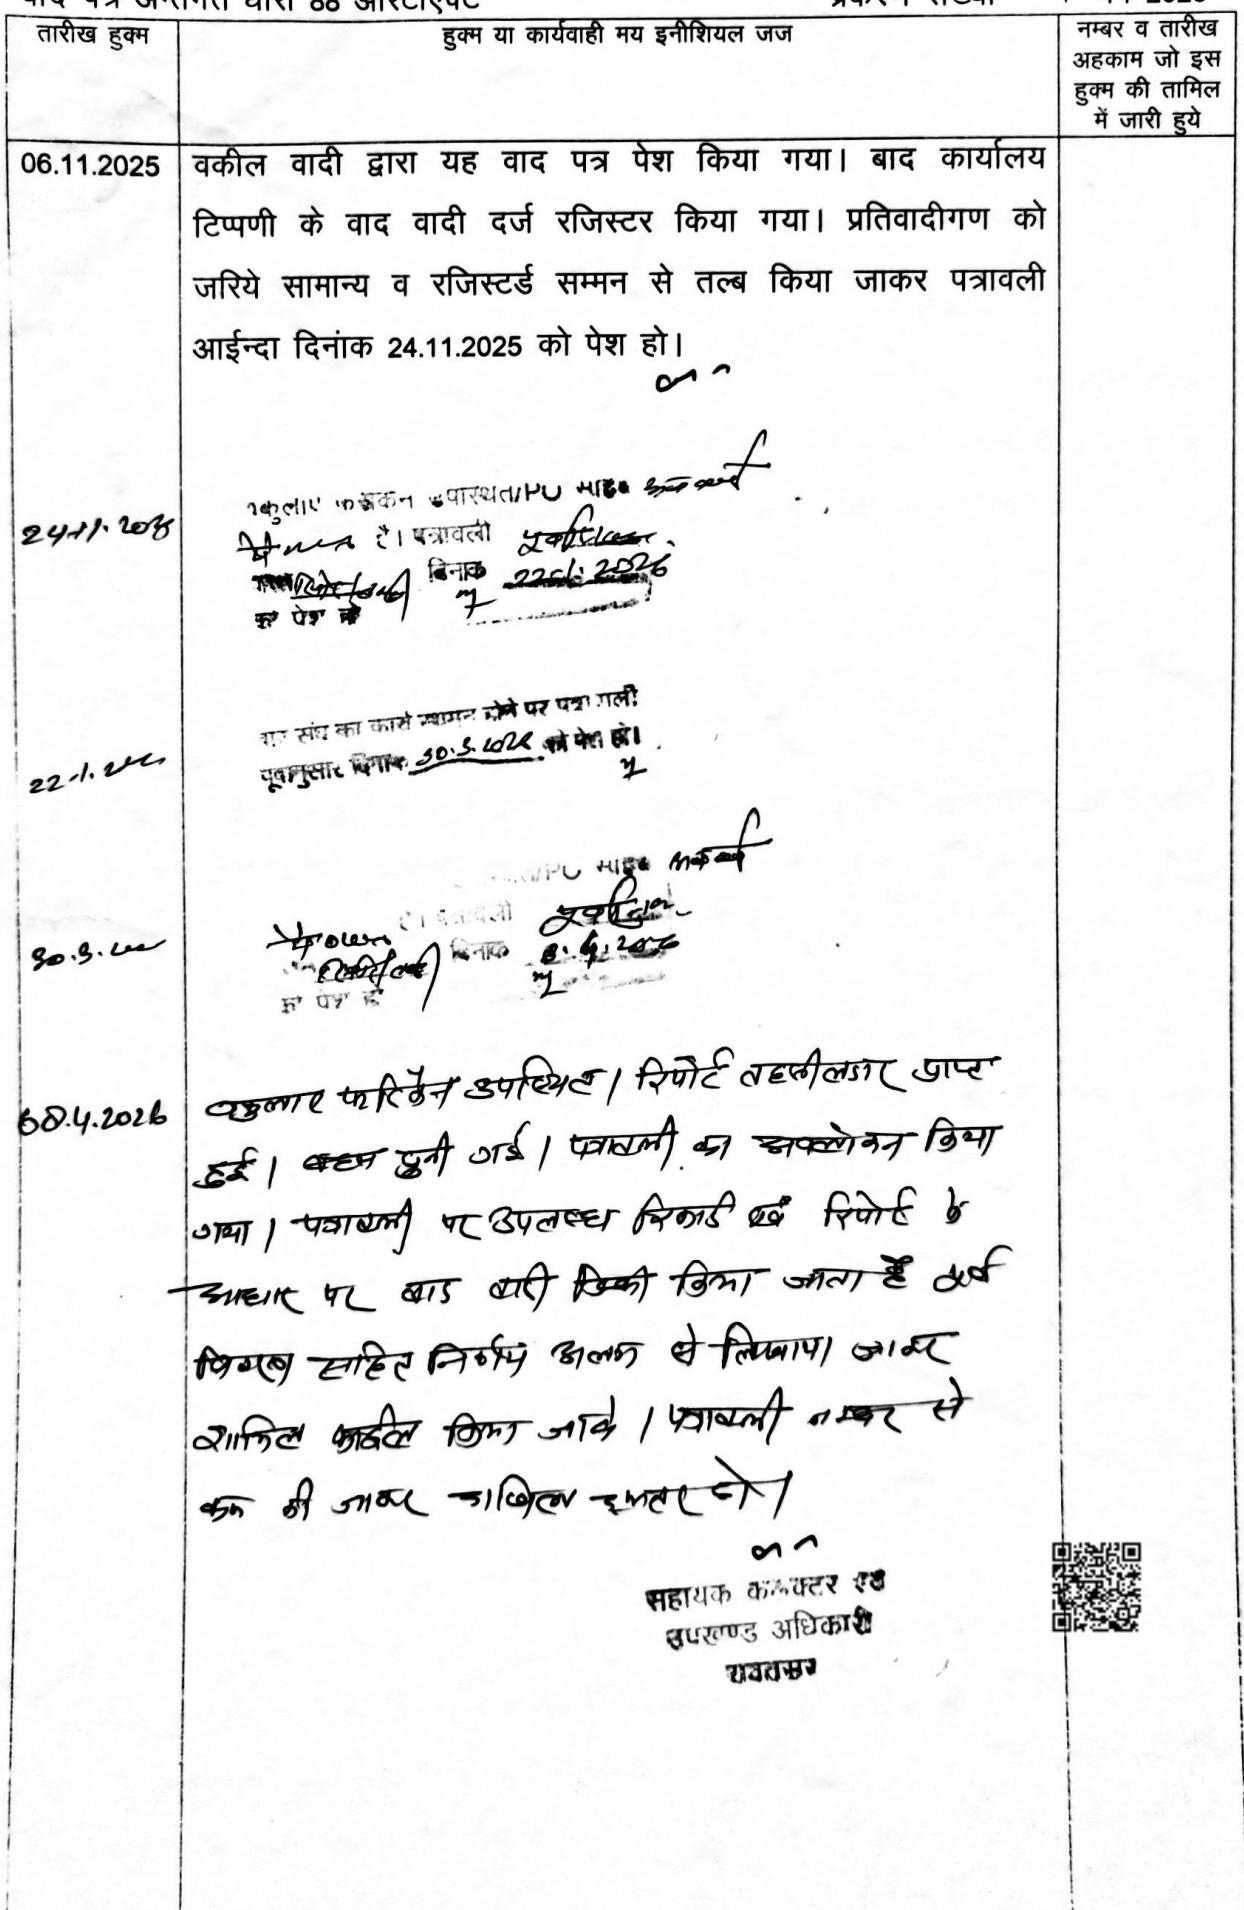 वाद पत्र अन्तर्गत धारा 88 आरटीएक्ट प्रकरण संख्या 2025
तारीख हुक्म
हुक्म या कार्यवाही मय इनीशियल जज
नम्बर व तारीख
अहकाम जो इस
हुक्म की तामिल
में जारी हुये
06.11.2025
वकील वादी द्वारा यह वाद पत्र पेश किया गया। बाद कार्यालय
टिप्पणी के वाद वादी दर्ज रजिस्टर किया गया। प्रतिवादीगण को
जरिये सामान्य व रजिस्टर्ड सम्मन से तल्ब किया जाकर पत्रावली
आईन्दा दिनांक 24.11.2025 को पेश हो।
24.11.2025
है। पत्रावली
दिनांक 22.1.2026
को पेश हो
22.1.2026
संघ का कार्य स्थगन होने पर पत्रावली
पूर्वानुसार दिनांक 30.3.2026 को पेश हो।
30.3.2026
है। पत्रावली
दिनांक 8.4.2026
को पेश हो
08.4.2026
वकुलाए फरिकेन उपस्थित। रिपोर्ट तहसीलदार प्राप्त
हुई। बहस सुनी गई। पत्रावली का अवलोकन किया
गया। पत्रावली पर उपलब्ध रिकार्ड एवं रिपोर्ट के
आधार पर वाद वादी डिक्री किया जाता है
सहित निर्णय अलग से लिखाया जाकर
शामिल फाईल किया जावे। पत्रावली नम्बर से
कम की जाकर दाखिल दफ्तर हो।
सहायक कलक्टर एवं
उपखण्ड अधिकारी
रावतसर